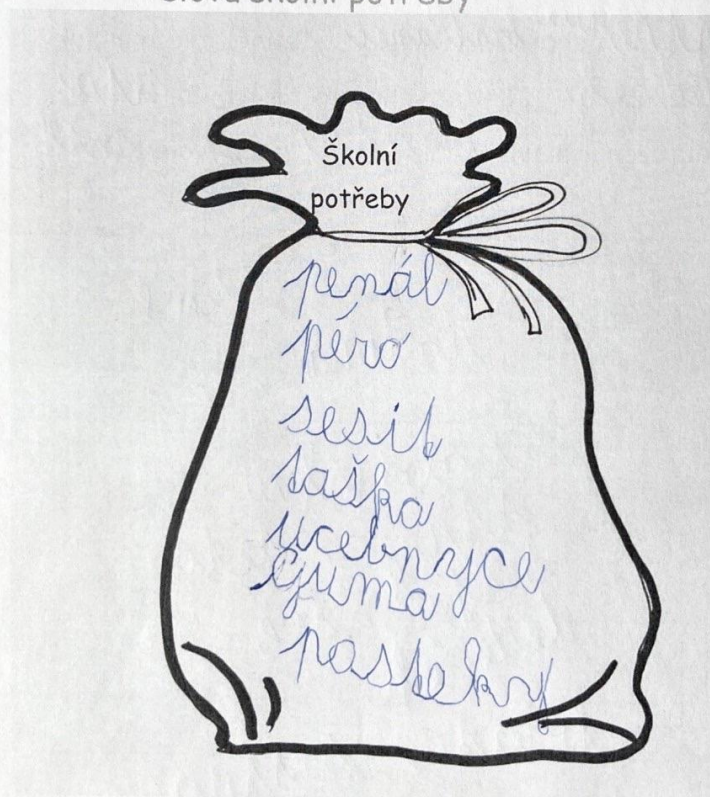 Slova školní potřeby
Školní
potřeby
penál
péro
sesit
taška
ucebnyce
Guma
pasteky